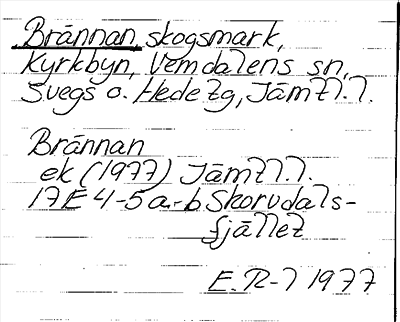 Brännan skogsmark,
Kyrkbyn, Vemdalens sn,
Svegs o. Hede tg, Jämtl.l.
Brännan
ek (1977) Jämtl.l.
17E 4-5 a-b Skorvdals-
fjället
E.R-l 1977